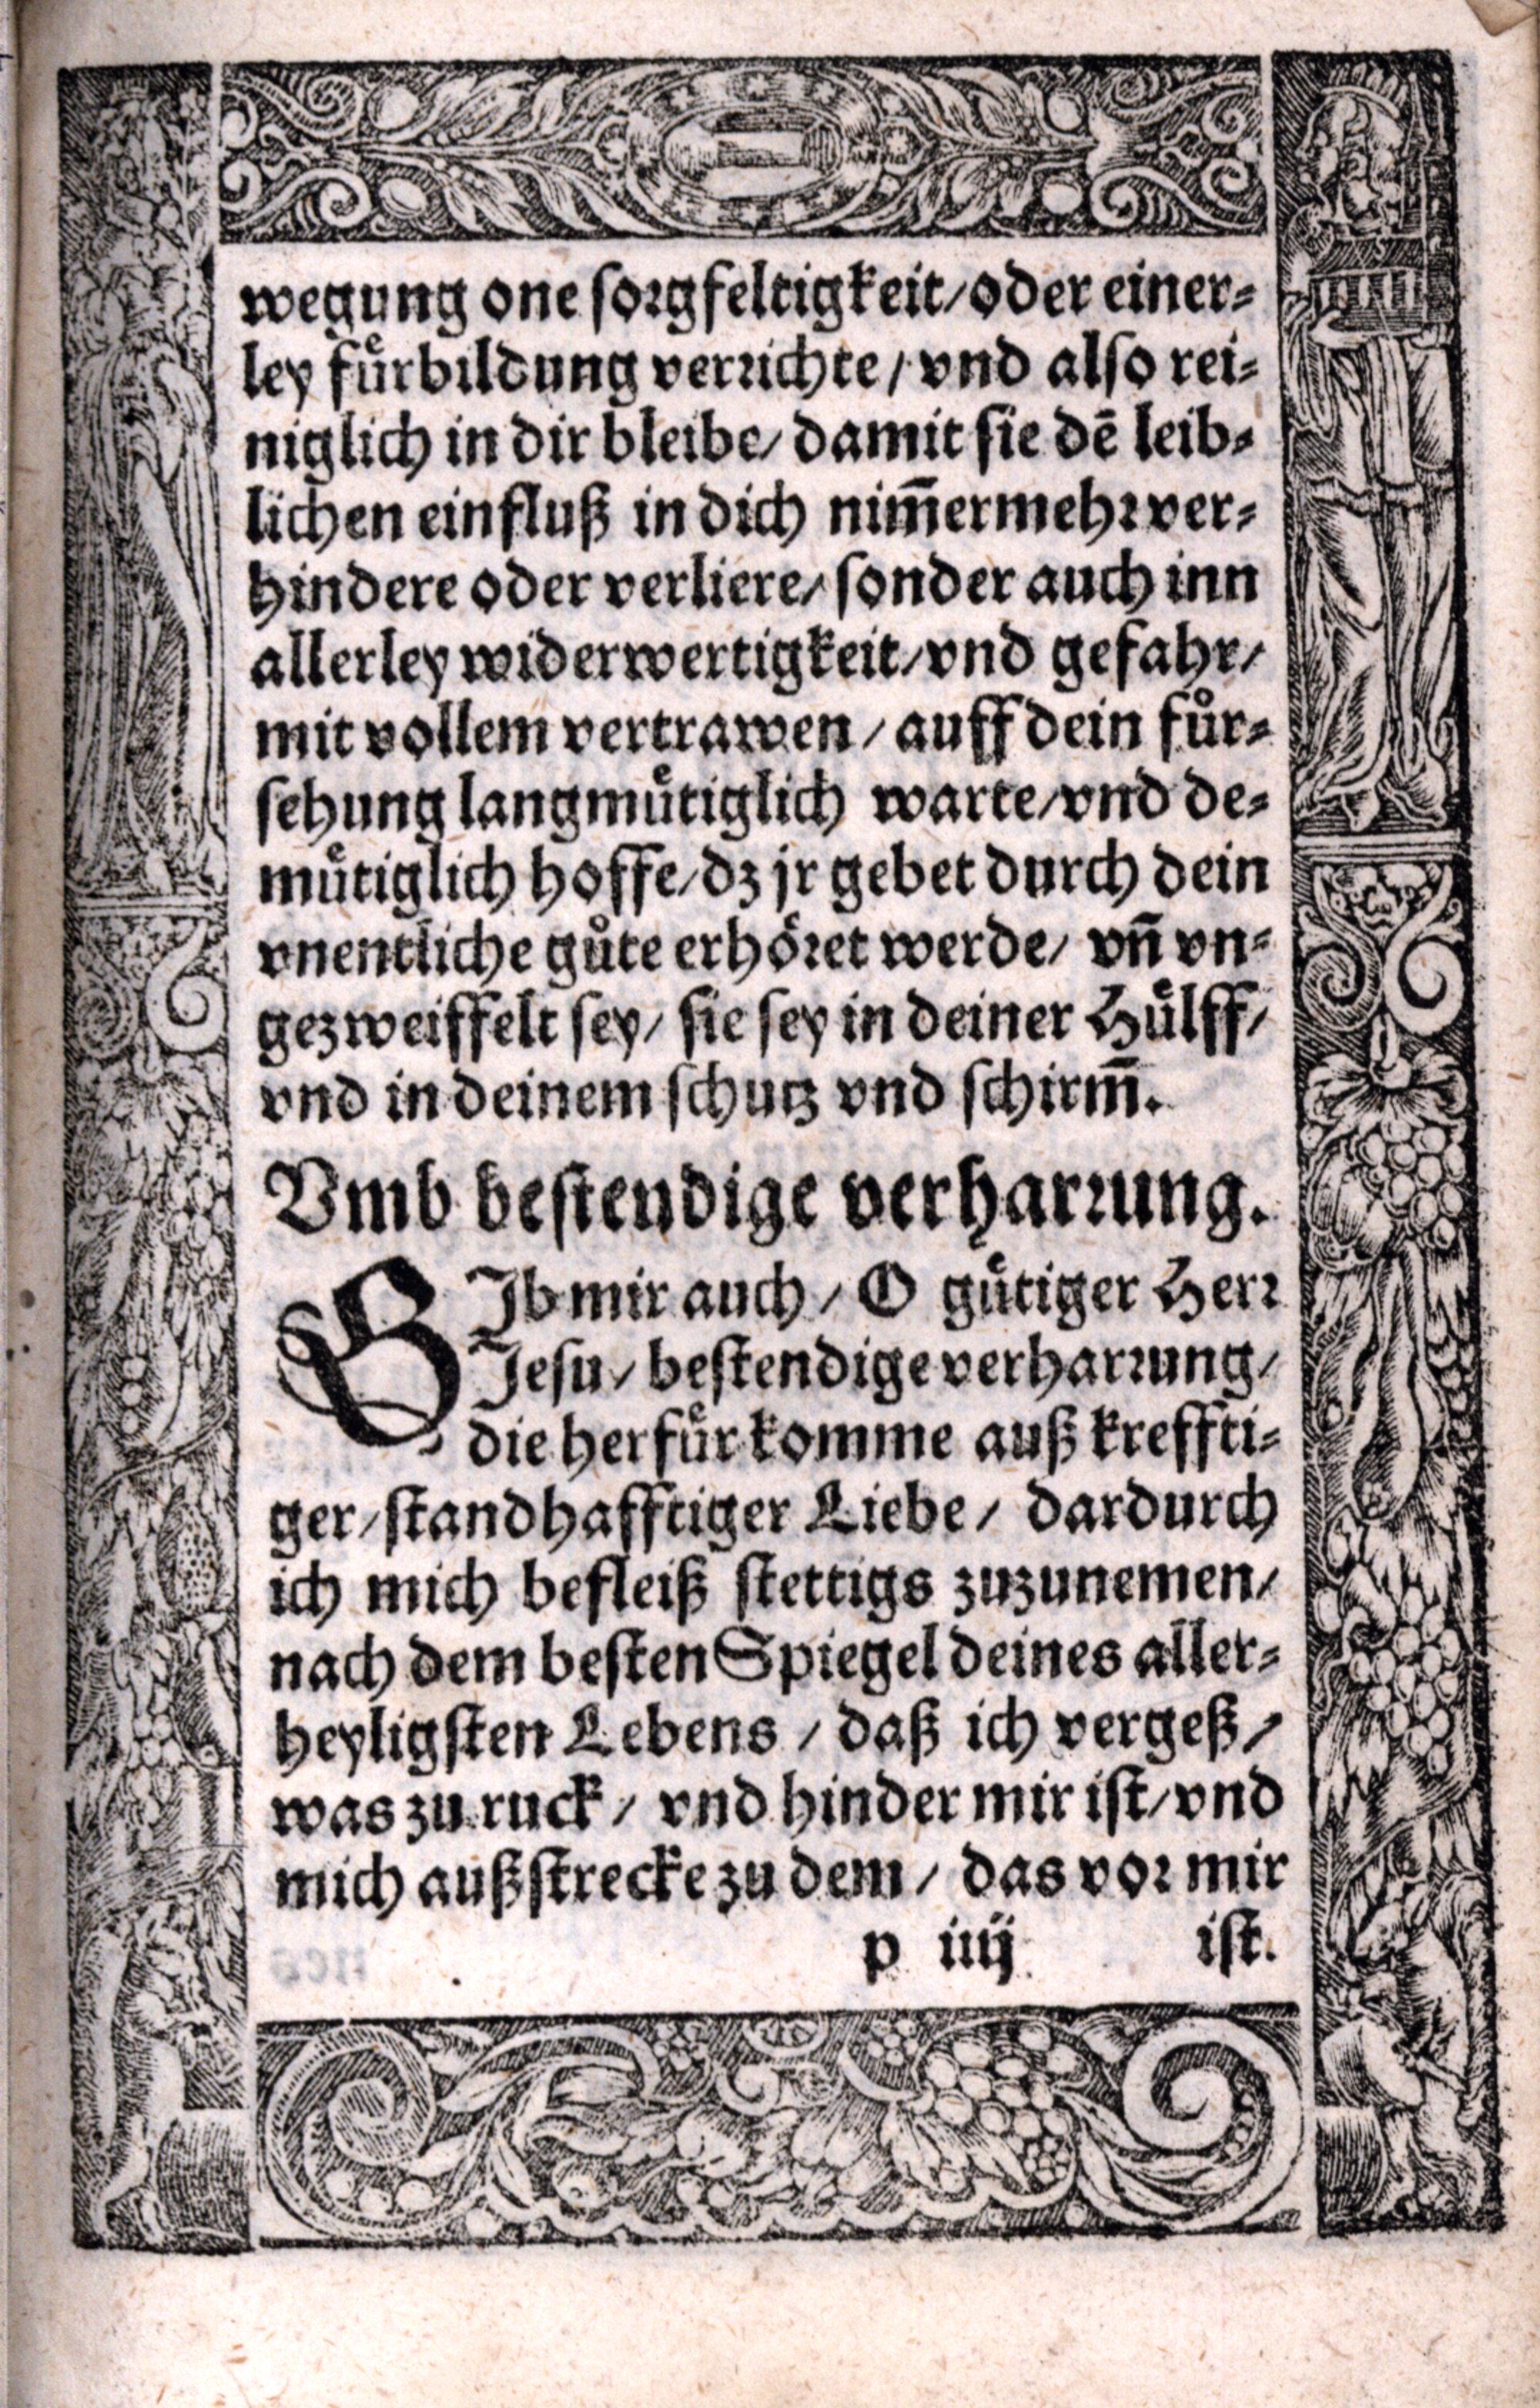 wegung one sorgfeltigkeit/ oder einer⸗
ley fuͤrbildung verrichte / vnd also rei⸗
niglich in dir bleibe/ damit sie dē leib⸗
lichen einfluß in dich nim̄ermehr ver⸗
hindere oder verliere/ sonder auch inn
allerley widerwertigkeit/ vnd gefahr/
mit vollem vertrawen / auff dein fuͤr⸗
sehung langmuͤtiglich warte/ vnd de⸗
muͤtiglich hoffe/ dz jr gebet durch dein
vnentliche guͤte erhoͤret werde/ vn̄ vn⸗
gezweiffelt sey/ sie sey in deiner Huͤlff/
vnd in deinem schutz vnd schirm̄.
Vmb bestendige verharrung.
GIb mir auch / O guͤtiger Herr
Jesu/ bestendige verharrung/
die herfuͤr komme auß kreffti⸗
ger/ standhafftiger Liebe / dardurch
ich mich befleiß stettigs zuzunemen/
nach dem besten Spiegel deines aller⸗
heyligsten Lebens / daß ich vergeß/
was zu ruck / vnd hinder mir ist/ vnd
mich außstrecke zu dem / das vor mir
p iiij ist.